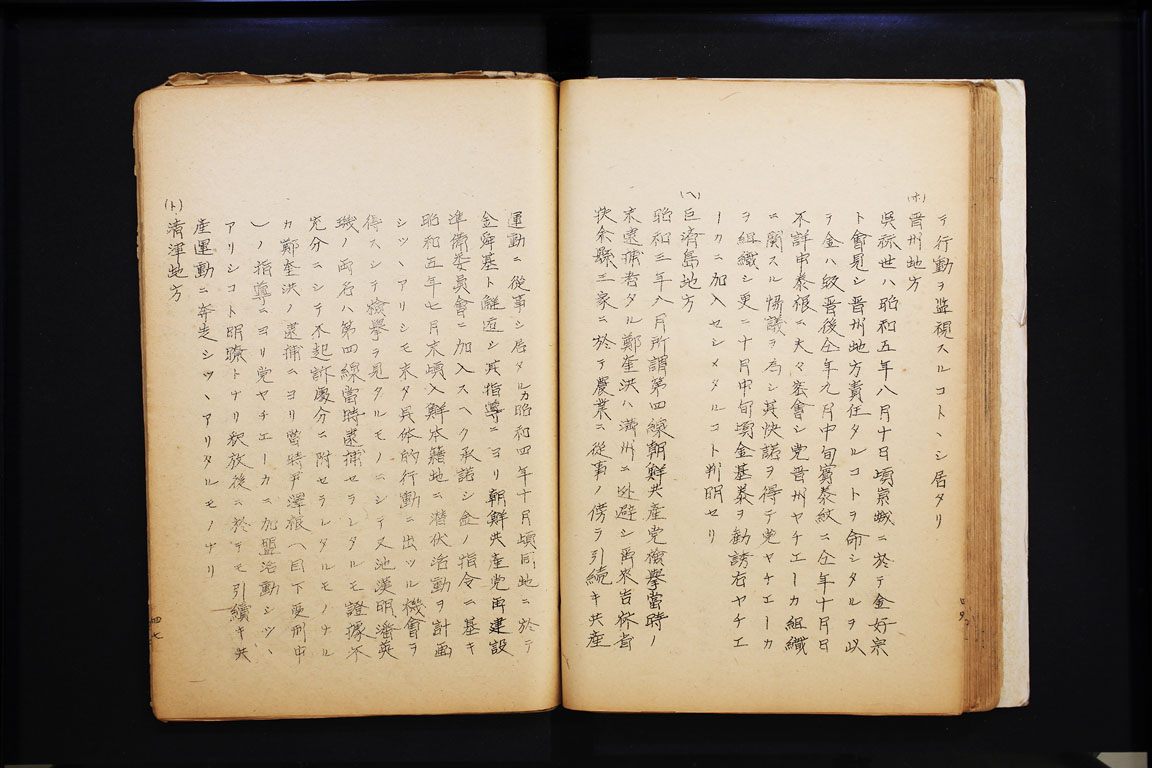 テ行動ヲ監視スルコトヽシ居タリ
(ホ)
晋州地方
呉祿世ハ昭和五年八月十日頃京城ニ於テ金好宗
ト會見シ晋州地方責任タルコトヲ命シタルヲ以
テ金ハ皈晋後仝年九月中旬 泰紋ニ仝年十月日
不詳申泰根ニ夫々密會シ党晋州ヤチエーカ組織
ニ関スル協議ヲ為シ其快諾ヲ得テ党ヤチエーカ
ヲ組織シ更ニ十月中旬頃金基泰ヲ勧誘右ヤチエ
ーカニ加入セシメタルコト判明セリ
(ヘ)
巨済島地方
昭和三年八月所謂第四線朝鮮共産党檢擧當時ノ
未逮捕者タル鄭奎洪ハ満州ニ逃避シ
於テ農業ニ従事ノ傍ラ引続キ共産
四六
運動ニ従事シ居タルカ昭和四年十月頃同地ニ於テ
金舜基ト邂逅シ其指導ニヨリ朝鮮共産党再建設
準衛委員會ニ加入スヘク承諾シ金ノ指令ニ基キ
昭和五年七月末頃入鮮本籍地ニ潜伏活動ヲ計画
シツヽアリシモ未タ具体的行動ニ出ツル機會ヲ
得スシテ檢擧ヲ見タルモノニシテ又池漢明潘英
璣ノ両名ハ第四線當時逮捕セラレタルモ證據不
充分ニシテ不起訴處分ニ附セラレタルモノナル
カ鄭奎洪ノ逮捕ニヨリ當時尹澤根(目下受刑中
)ノ指導ニヨリ党ヤチエーカニ加盟活動シツヽ
アリシコト明瞭トナリ釈放後ニ於テモ引續キ共
産運動ニ奔走シツヽアリタルモノナリ
(ト)
清津地方
四七